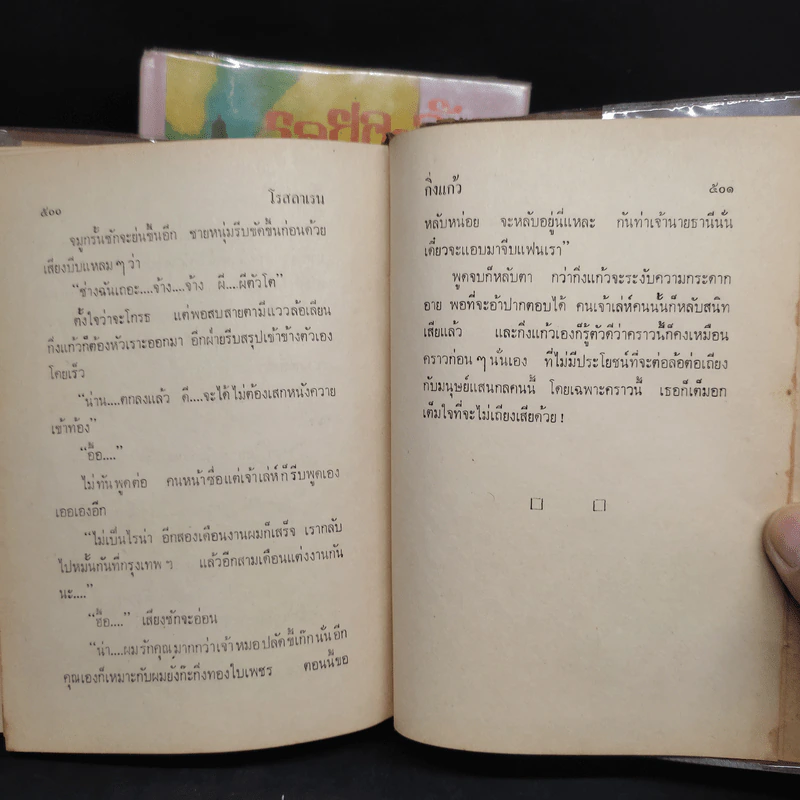 ๕๐๐ โรสลาเรน
จมูกรั้นชักจะย่นขึ้นอีก ชายหนุ่มรีบขัดขึ้นก่อนด้วย
เสียงบีบแหลม ๆ ว่า
“ช่างฉันเถอะ....จ้าง....จ้าง ผี....ผีตัวโต”
ตั้งใจว่าจะโกรธ แต่พอสบสายตามีแววล้อเลียน
กิ่งแก้วก็ต้องหัวเราะออกมา อีกฝ่ายรีบสรุปเข้าข้างตัวเอง
โดยเร็ว
“น่าน....ตกลงแล้ว ดี....จะได้ไม่ต้องเสกหนังควาย
เข้าท้อง”
“อื้อ....”
ไม่ทันพูดต่อ คนหน้าซื่อแต่เจ้าเล่ห์ก็รีบพูดเอง
เออเองอีก
“ไม่เป็นไรน่า อีกสองเดือนงานผมก็เสร็จ เรากลับ
ไปหมั้นกันที่กรุงเทพ ฯ แล้วอีกสามเดือนแต่งงานกัน
นะ....”
“ฮื้อ....” เสียงชักจะอ่อน
“น่า....ผมรักคุณมากกว่าเจ้าหมอปลัดขี้เก๊กนั่นอีก
คุณเองก็เหมาะกับผมยั่งก๊ะกิ่งทองใบเพชร ตอนนี้ขอ
กิ่งแก้ว ๕๐๑
หลับหน่อย จะหลับอยู่นี่แหละ กันท่าเจ้านายธานีนั่น
เดี๋ยวจะแอบมาจีบแฟนเรา”
พูดจบก็หลับตา กว่ากิ่งแก้วจะระงับความกระดาก
อาย พอที่จะอ้าปากตอบได้ คนเจ้าเล่ห์คนนั้นก็หลับสนิท
เสียแล้ว และกิ่งแก้วเองก็รู้ตัวดีว่าคราวนี้ก็คงเหมือน
คราวก่อน ๆ นั่นเอง ที่ไม่มีประโยชน์ที่จะต่อล้อต่อเถียง
กับมนุษย์แสนกลคนนี้ โดยเฉพาะคราวนี้ เธอก็เต็มอก
เต็มใจที่จะไม่เถียงเสียด้วย !